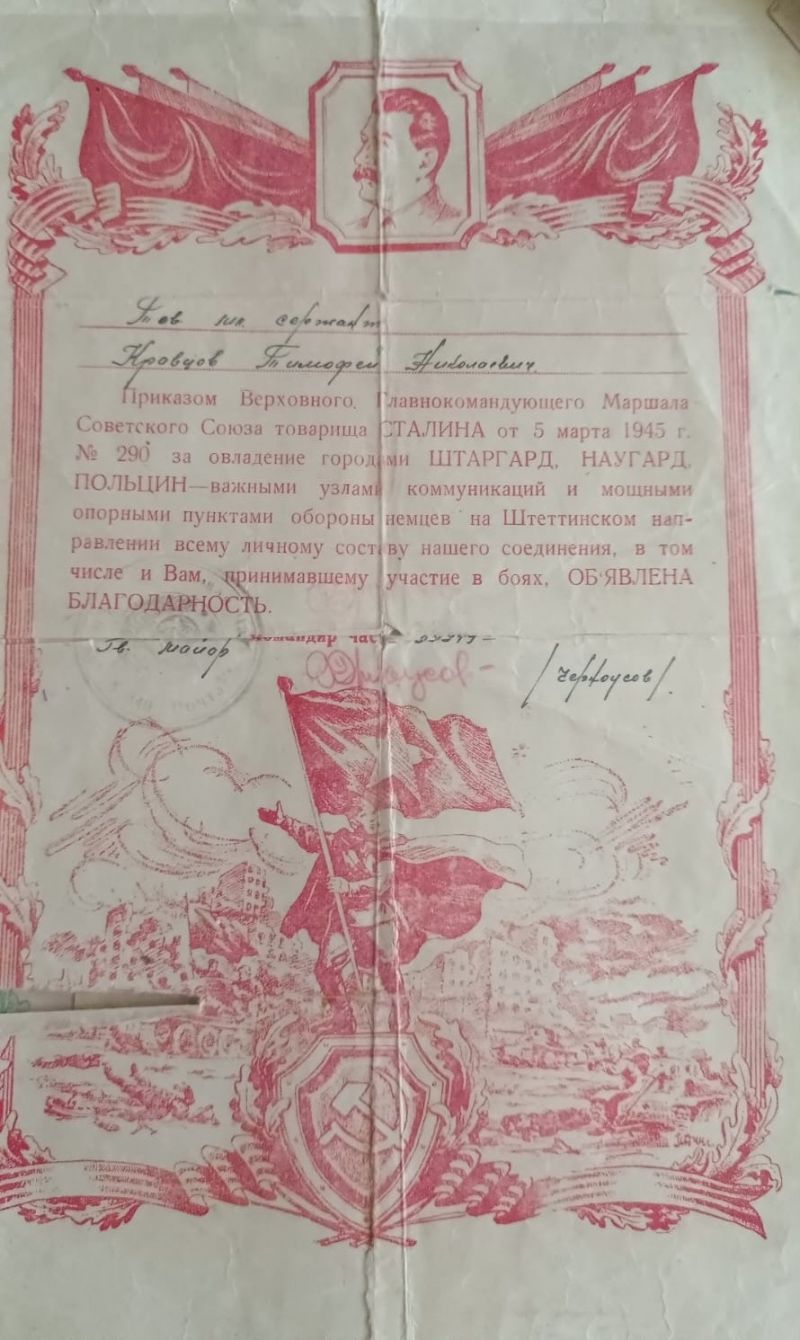 Тов мл. сержант
Кравцов Тимофей Николаевич
Приказом Верховного Главнокомандующего Маршала
Советского Союза товарища СТАЛИНА от 5 марта 1945 г.
№ 290 за овладение городами ШТАРГАРД, НАУГАРД,
ПОЛЬЦИН—важными узлами коммуникаций и мощными
опорными пунктами обороны немцев на Штеттинском нап-
равлении всему личному составу нашего соединения, в том
числе и Вам, принимавшему участие в боях, ОБ'ЯВЛЕНА
БЛАГОДАРНОСТЬ.
Командир части
Гв. майор /Черноусов/.